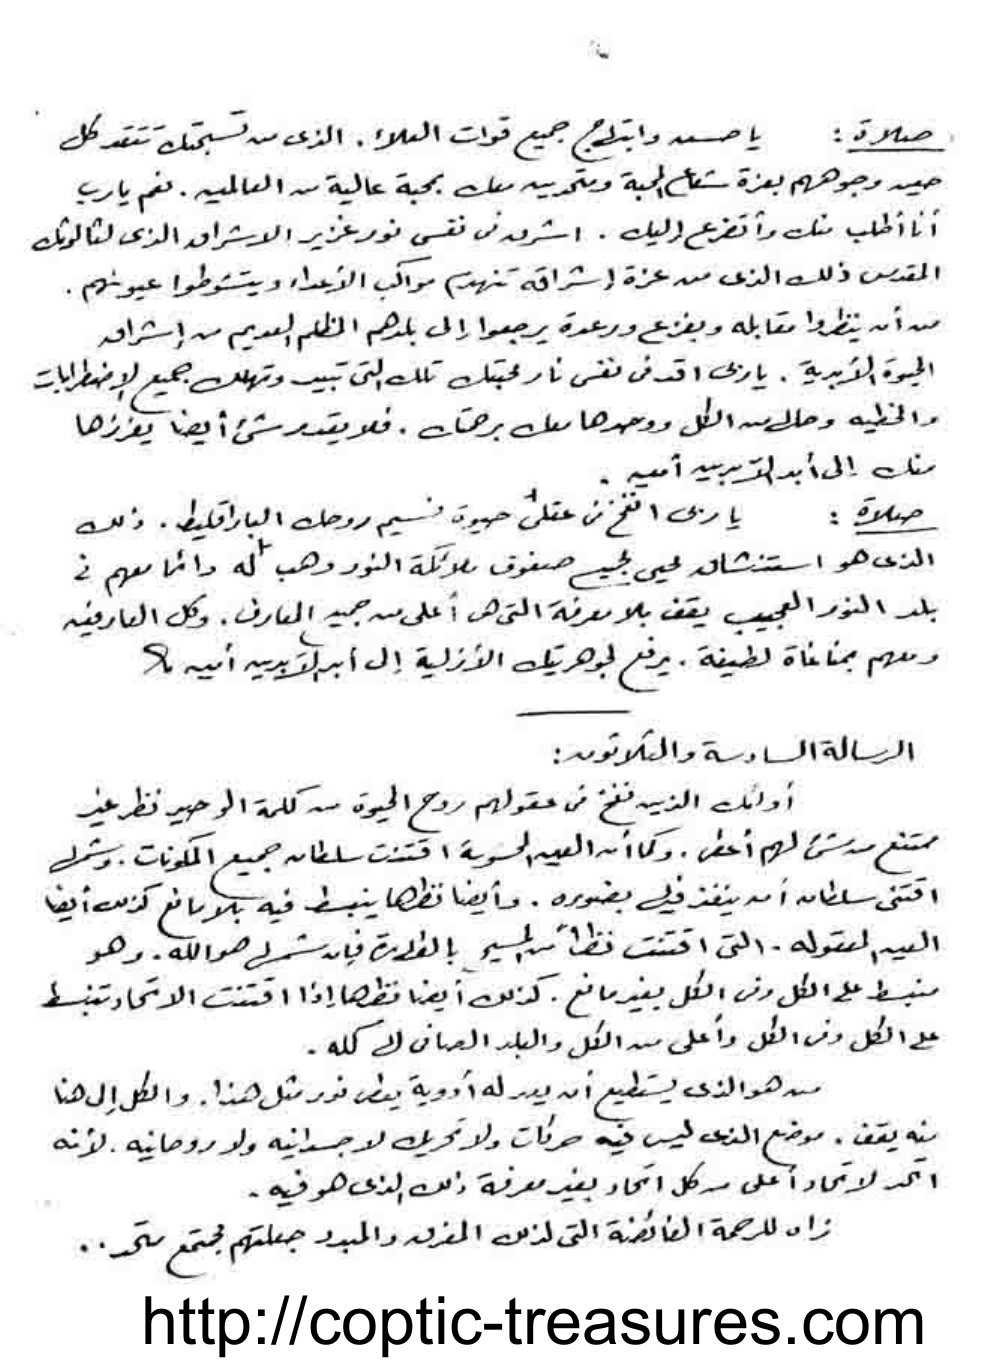 صلاة : يا حسن وابتهاج جميع قوات العلاء . الذى من تسبحتك تتقد كل
حين وجوههم بعزة شعاع المحبة ومتحدين معك بمحبة عالية من العالمين . نعم يارب
أنا أطلب منك وأتضرع إليك . اشرق فى نفسى نور غزير الاشراق الذى لثالوثك
المقدس ذلك الذى من عزة إشراقه تنهزم مواكب الأعداء ويتشوطوا عيونهم .
من أن ينظروا مقابله وبفزع ورعدة يرجعوا إلى بلدهم المظلم العديم من إشراق
الحيوة الأبدية . ياربى اقد فى نفسى نار محبتك تلك التى تبيد وتهلك جميع الإضطرابات
والخطيه وحال من الكل ووحدها معك برحمتك . فلا يقدر شئ أيضا يفرزها
منك إلى أبد الآبدين أمين .
صلاة : ياربى انفخ فى عقلى حيوة نسيم روحك الباراقليط . ذلك
الذى هو استنشاق محيى لجميع صفوف ملائكة النور وهب له دائما معهم فى
بلد النور العجيب يقف بلا معرفة التى هى أعلى من جميع المعارف . وكل العارفين
ومعهم بمناغاة لطيفة . يرفع لجوهريتك الأزلية إلى أبد الآبدين أمين
الرسالة السادسة والثلاثون :
أولئك الذين نفخ فى عقولهم روح الحيوة من كلمة الوحيد نظر غير
ممتنع من شئ لهم أعطى . وكما أن العين الحسوية اقتنت سلطان جميع المكونات . وشمس
اقتنى سلطان أن ينفذ فيها بضوءه . وأيضا نظرها ينبسط فيه بلا مانع كذلك أيضا
العين المعقوله . التى اقتنت نظراً من المسيح فإن شمسها هو الله . وهو
منبسط على الكل وفى الكل بغير مانع . كذلك أيضا نظرها إذا اقتنت الاتحاد تنبسط
على الكل وفى الكل وأعلى من الكل والبلد الصافى كله .
من هو الذى يستطيع أن له أدوية يعطى نور مثل هذا . والكل إلى هنا
منه يقف . موضع الذى ليس فيه حركات ولا تحريك لا جسدانيه ولا روحانيه . لأنه
اتحد لاتحاد أعلى من كل اتحاد بغير معرفة ذلك الذى هو فيه .
للرحمة الفائضة التى لذلك المفرق والمبدد جعلتهم مجتمع متحد . .
http://coptic-treasures.com